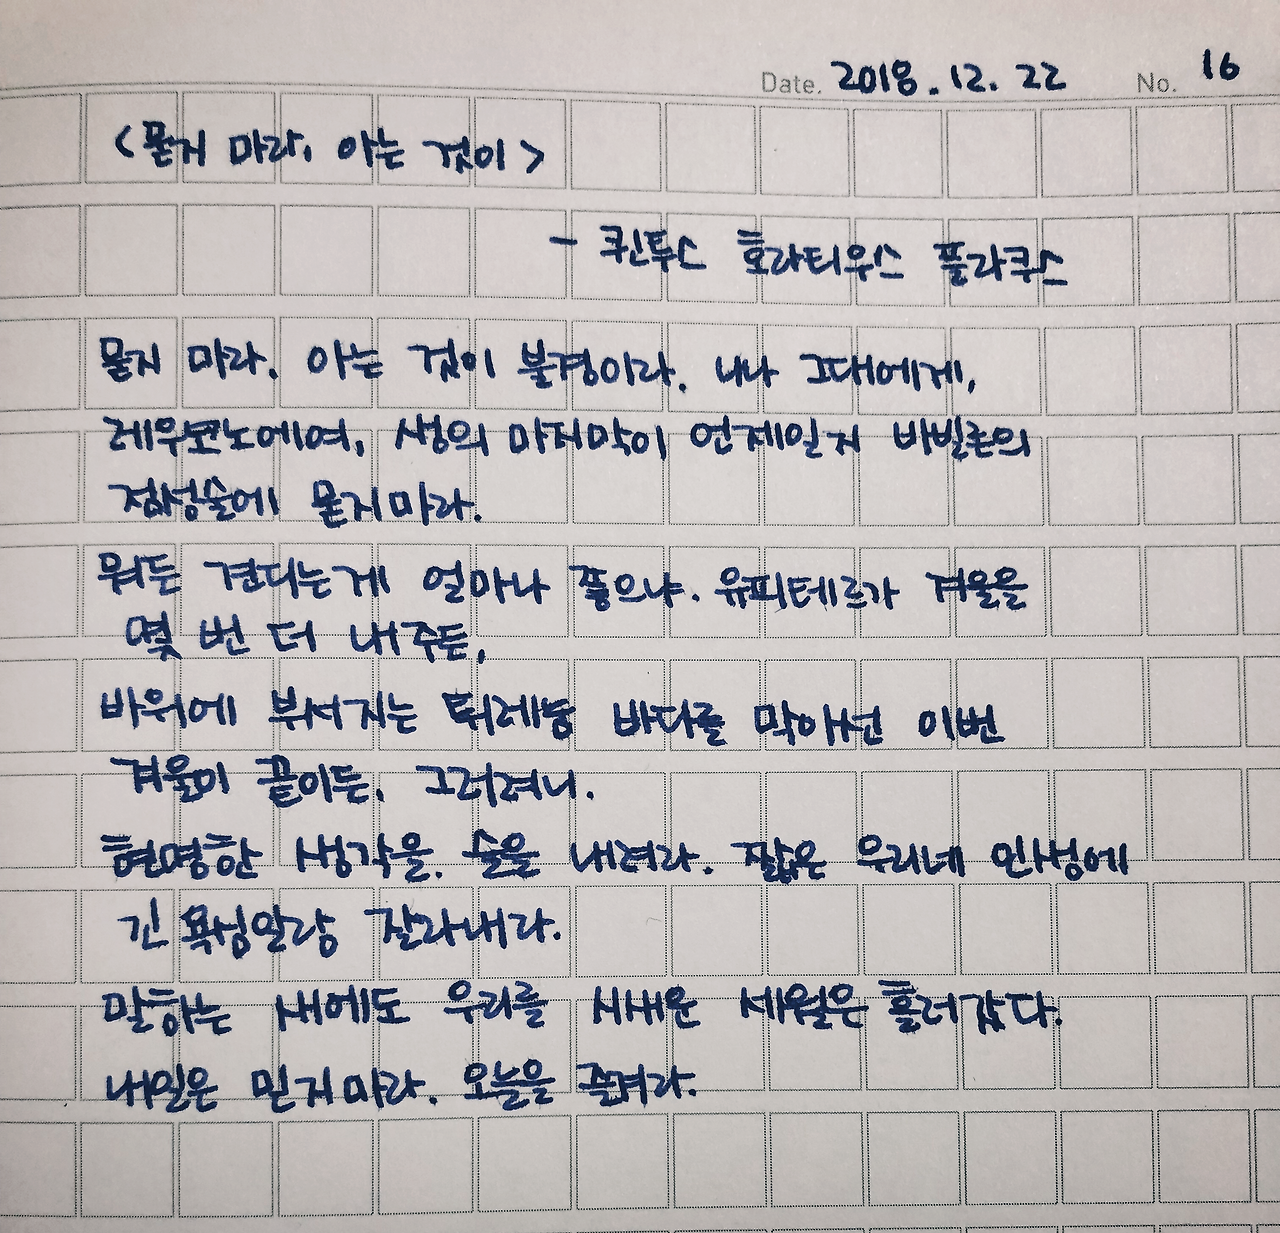 Date. 2018. 12. 22 No. 16
<묻지 마라, 아는 것이>
- 퀸투스 호라티우스 플라쿠스
묻지 마라, 아는 것이 불경이라, 나나 그대에게,
레우코노에여, 생의 마지막이 언제일지 바빌론의
점성술에 묻지마라.
뭐든 견디는게 얼마나 좋으냐. 유피테르가 겨울을
몇 번 더 내주든,
바위에 부서지는 튀레눔 바다를 막아선 이번
겨울이 끝이든, 그러려니.
현명한 생각을, 술을 내려라. 짧은 우리네 인생에
긴 욕심일랑 잘라내라.
말하는 새에도 우리를 시새운 세월은 흘러갔다.
내일은 믿지마라. 오늘을 즐겨라.